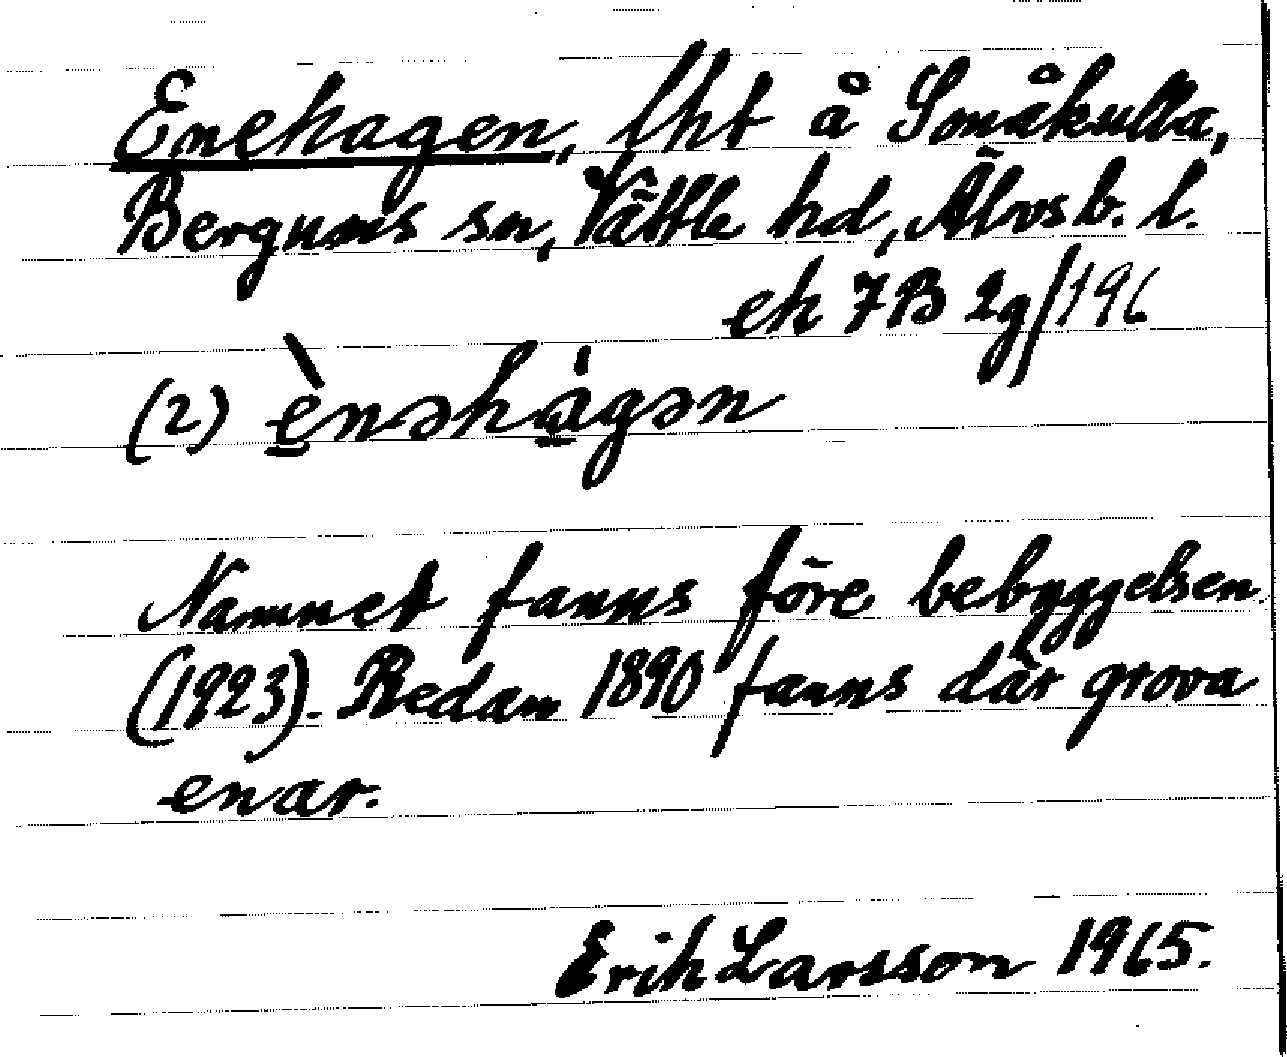 Enehagen, lht å Småkulla,
Bergums sn, Vättle hd, Älvsb. l.
ek 7B 2g/196
(2) ènəhágən
Namnet fanns före bebyggelsen
(1923). Redan 1890 fanns där grova
enar.
Erik Larsson 1965.